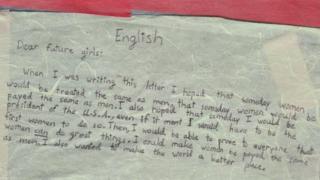 English
Dear future girls:
When I was writing this letter I hoped that someday women
would be treated the same as men, that someday, women would be
payed the same as men. I also hoped that someday I would be
president of the U.S.A, even if it ment I would have to be the
first women to do so. Then, I would be able to prove to everyone that
women can do great things. I could make women be payed the same
as men. I also wanted to make the world a better place.